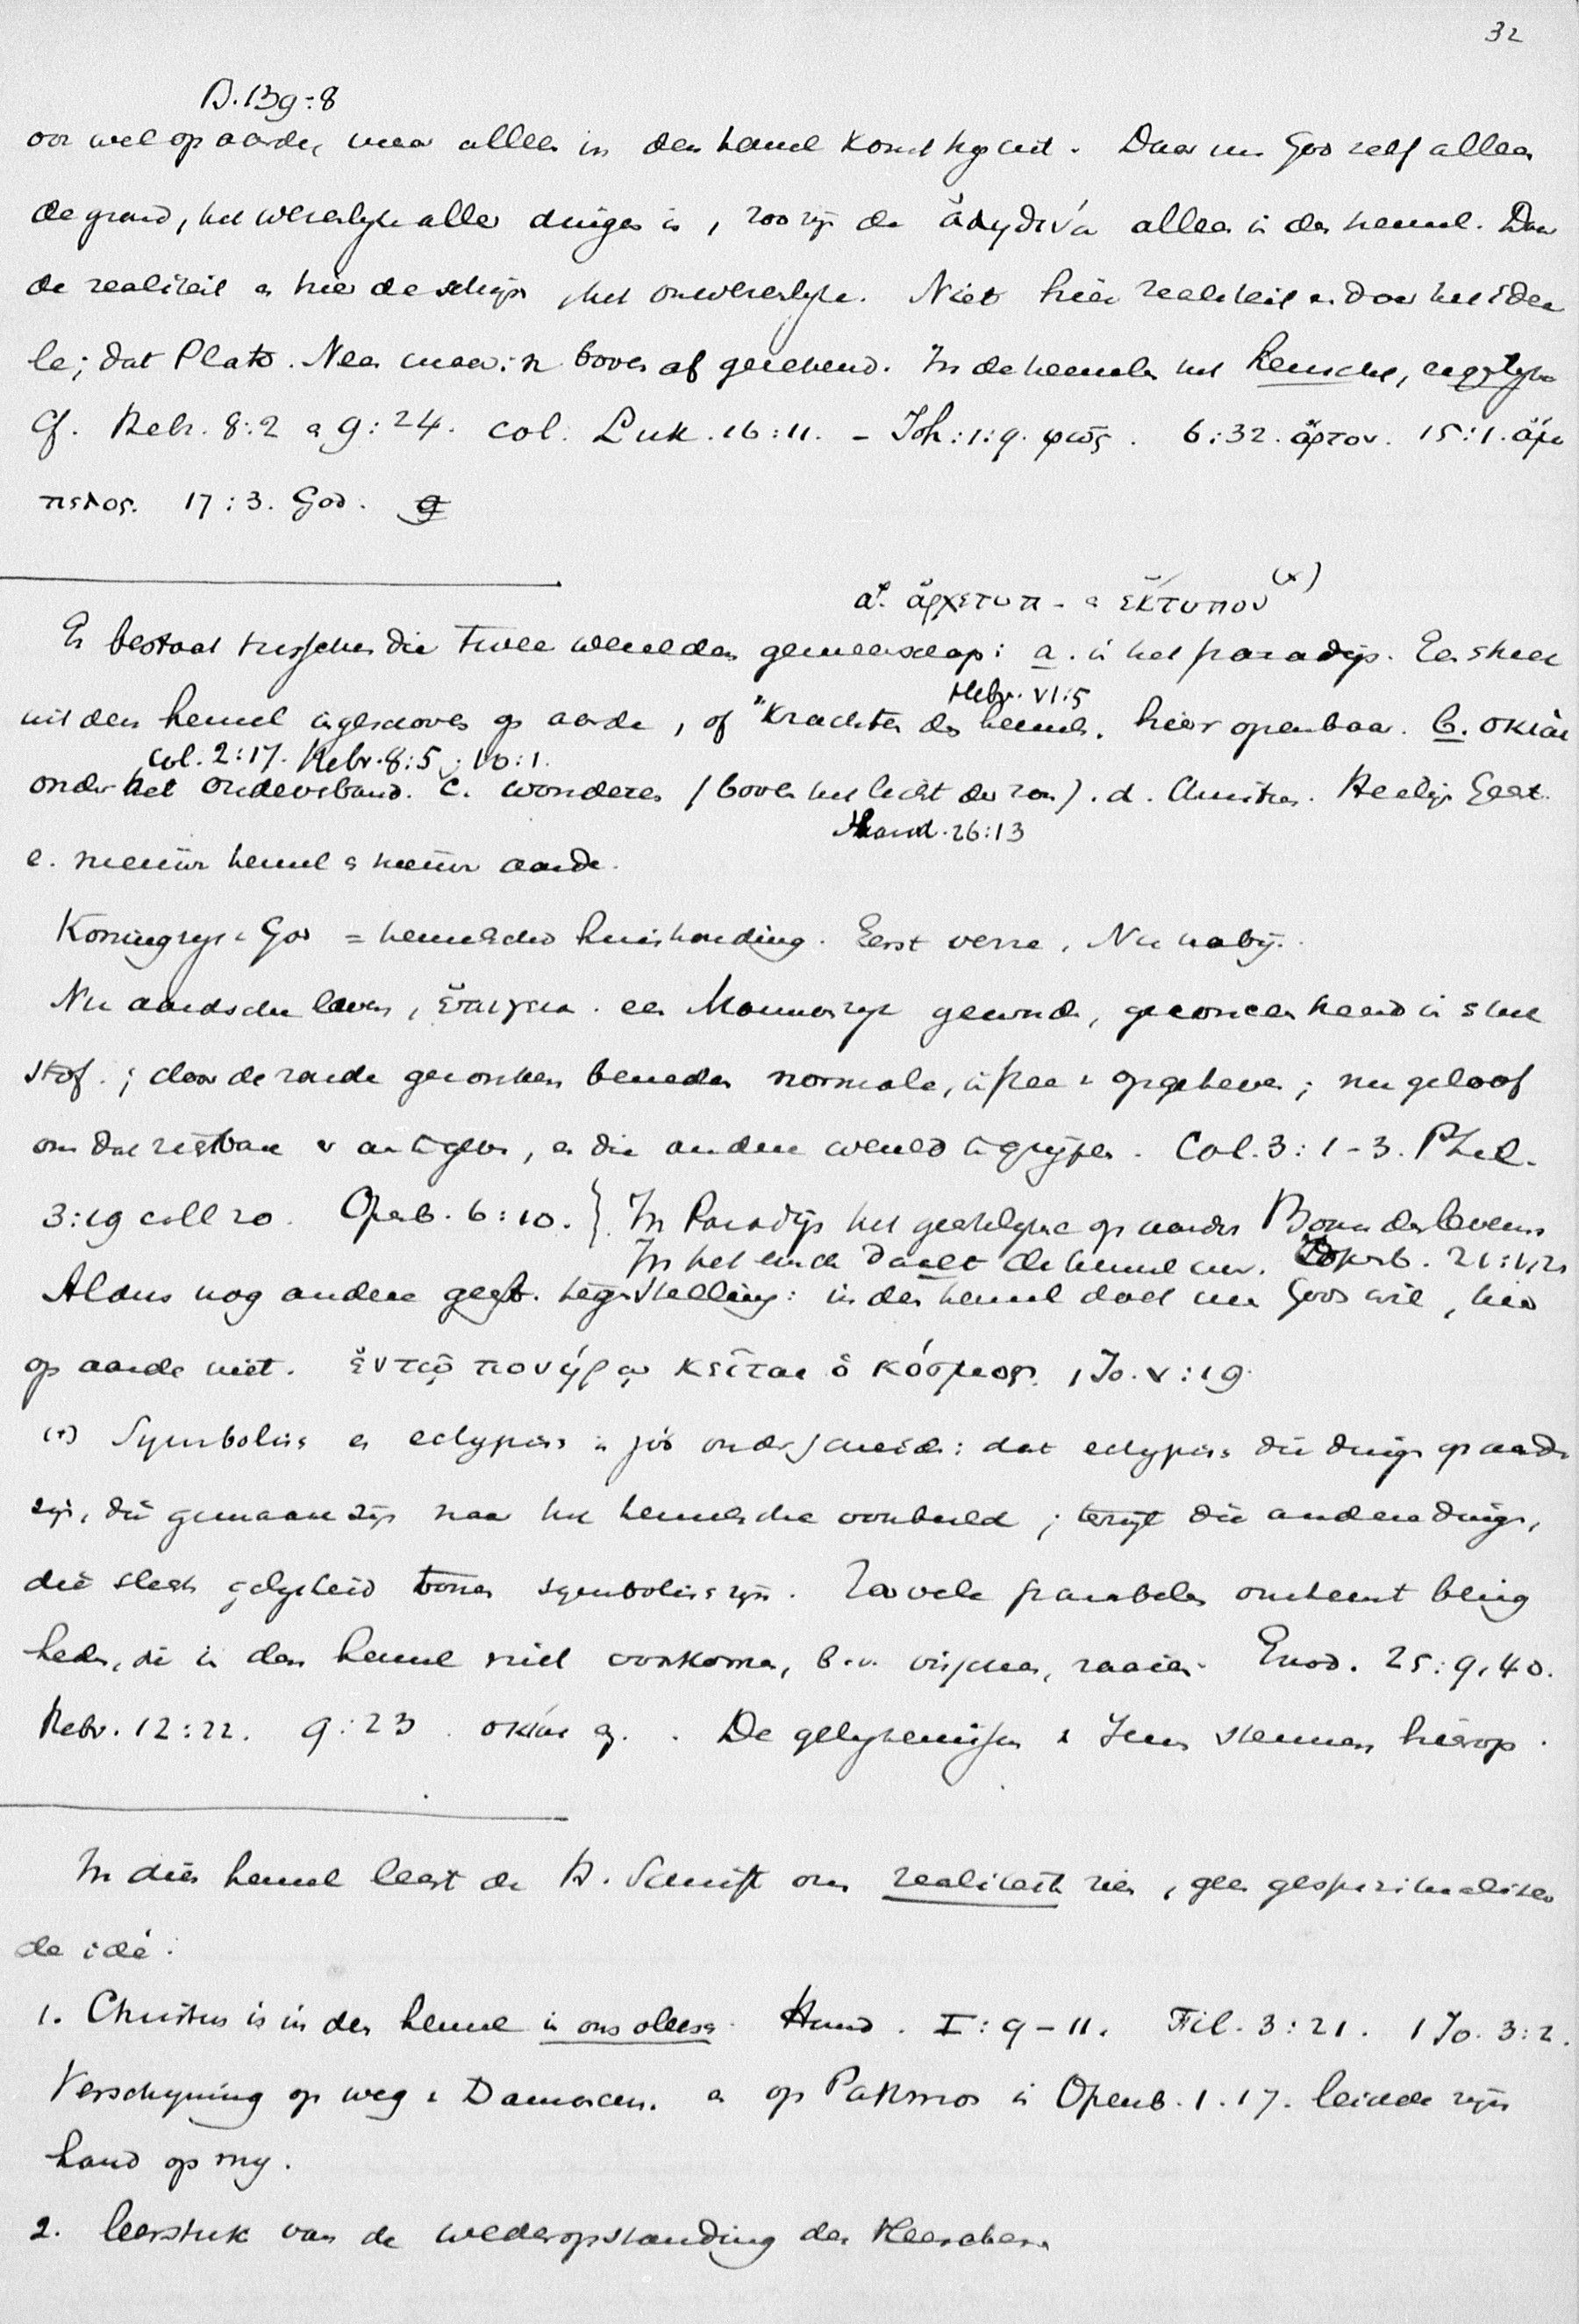 32
Ps. 139:8
ook wel op aarde, maar alleen in den hemel komt hy uit. Daar nu God zelf alleen
de grond, het wezenlyke aller dingen is, zoo zyn de ἀληθινά alleen in den hemel. Daar
de realiteit en hier de schyn, het onwezenlyke. Niet hier realiteit en daar het idea
le; dat Plato. Neen maar: n boven af gerekend. In de hemelen het hemelsche,
Cf. Hebr. 8:2 en 9:24. col. Luk. 16:11. - Joh. 1:9. φῶς. 6:32. ἄρτον. 15:1. ἄμ
πελος. 17:3. God.
ἀρχετυπ - en ἔκτυπον (x)
Er bestaat tusschen die twee werelden gemeenschap: a. in het paradys. Een stuk
Hebr. VI:5
uit den hemel ingeschoven op aarde, of "Krachten des hemels" hier openbaar. b. σκιαὶ
Col. 2:17. Hebr. 8:5; 10:1.
onder het Oude verbond. c. wonderen (boven het licht der zon). d. Christus. Heilige Geest.
Hand. 26:13
e. nieuwe hemel en nieuwe aarde.
Koningryk v God = hemelsche huishouding. Eerst verre, Nu naby.
Nu aardsche leven, ἐπίγεια. een
stof.; door de zonde gezonken beneden normale, ; nu geloof
om dat zigtbare, en die andere wereld te grypen. Col. 3:1-3. Phil.
3:19 coll 20. Openb. 6:10. } In Paradys het geestelyke op aarde Boom des levens
In het einde daalt de hemel neer. Openb. 21:1,2
Aldus nog andere tegenstelling: in den hemel doet men Gods wil, hier
op aarde niet. ἐν τῷ πονήρῳ κεῖται ὁ κόσμος. 1 Jo. V:19.
(x) Symbolisch en ectypisch is zóó onderscheiden: dat ectypisch die dingen op aarde
zyn, die gemaakt zyn naar het hemelsche voorbeeld; terwyl die andere dingen,
die slechts gelykheid tonen symbolisch zyn. Zoo vele parabelen ontleent
heden, die in den hemel niet voorkomen, b.v. visschen, zaaien. Exod. 25:9,40.
Hebr. 12:22. 9:23. σκιαὶ. De gelykenissen v Jezus steunen hierop.
In dien hemel leert de H. Schrift ons realiteit zien, geen gespiritualiseer
de idé:
1. Christus is in den hemel in ons vleesch. Hand. I:9-11. Fil. 3:21. 1 Jo. 3:2.
Verschyning op weg n Damascus. en op Patmos in Openb. 1.17. leidde zyn
hand op my.
2. leerstuk van de wederopstanding des vleesches